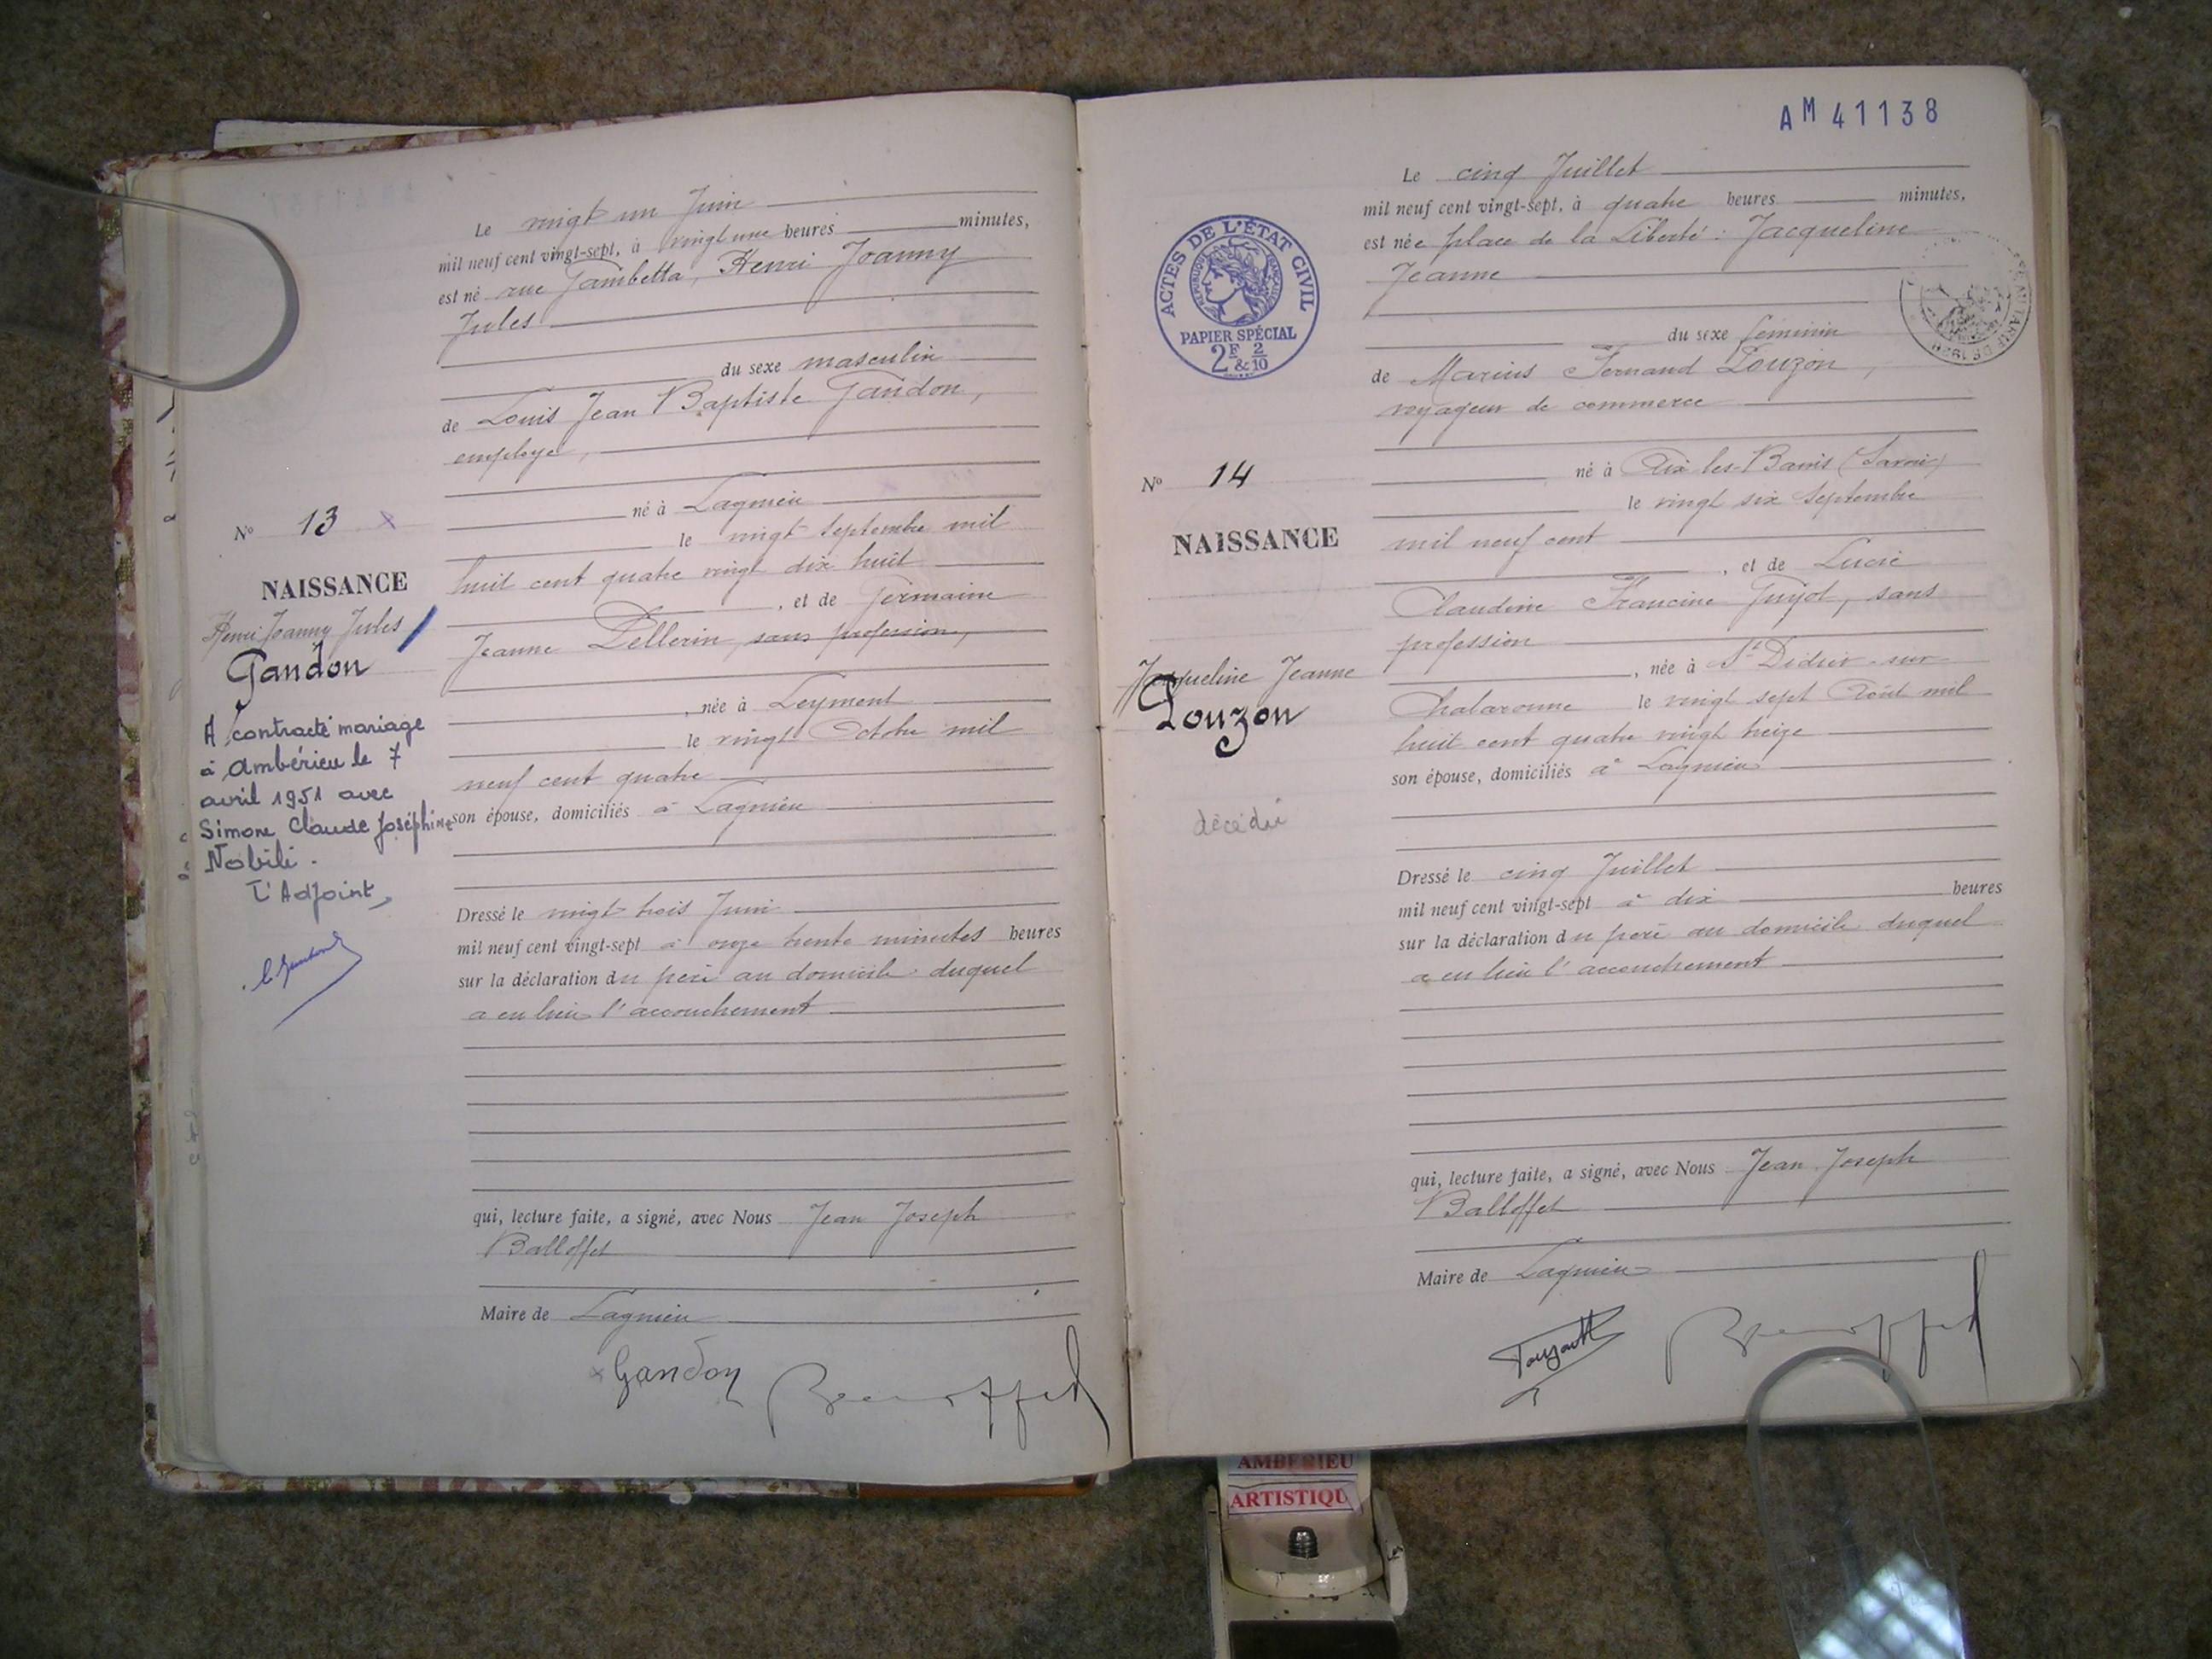 Le vingt un Juin
mil neuf cent vingt-sept, à vingt une heures minutes,
est né rue Gambetta, Henri Joanny
Jules
du sexe masculin
de Louis Jean Baptiste Gandon,
employé,
né à Lagnieu
le vingt Septembre mil
huit cent quatre vingt dix huit
, et de Germaine
Jeanne Pellerin, sans profession,
, née à Leyment
le vingt Octobre mil
neuf cent quatre
son épouse, domiciliés à Lagnieu
Dressé le vingt trois Juin
mil neuf cent vingt-sept à onze trente minutes heures
sur la déclaration du père au domicile duquel
a eu lieu l'accouchement
qui, lecture faite, a signé, avec Nous Jean Joseph
Balloffet
Maire de Lagnieu
Gandon
No 13
NAISSANCE
Henri Joanny Jules
Gandon
A contracté mariage
à Ambérieu le 7
avril 1951 avec
Simone Claude Joséphine
Nobili.
L'Adjoint,
AM 41138
Le cinq Juillet
mil neuf cent vingt-sept, à quatre heures minutes,
est née place de la Liberté : Jacqueline
Jeanne
du sexe féminin
de Marius Fernand Louzon,
voyageur de commerce
né à Aix les-Bains (Savoie)
le vingt six Septembre
mil neuf cent
, et de Lucie
Claudine Francine Guyot, sans
profession
, née à St Didier-sur
Chalaronne le vingt sept Août mil
huit cent quatre vingt treize
son épouse, domiciliés à Lagnieu
Dressé le cinq Juillet
mil neuf cent vingt-sept à dix heures
sur la déclaration du père au domicile duquel
a eu lieu l'accouchement
qui, lecture faite, a signé, avec Nous Jean Joseph
Balloffet
Maire de Lagnieu
ACTES DE L'ÉTAT CIVIL
RÉPUBLIQUE FRANÇAISE
PAPIER SPÉCIAL
2F & 2/10
No 14
NAISSANCE
Jacqueline Jeanne
Louzon
décédé
AMBERIEU
ARTISTIQU